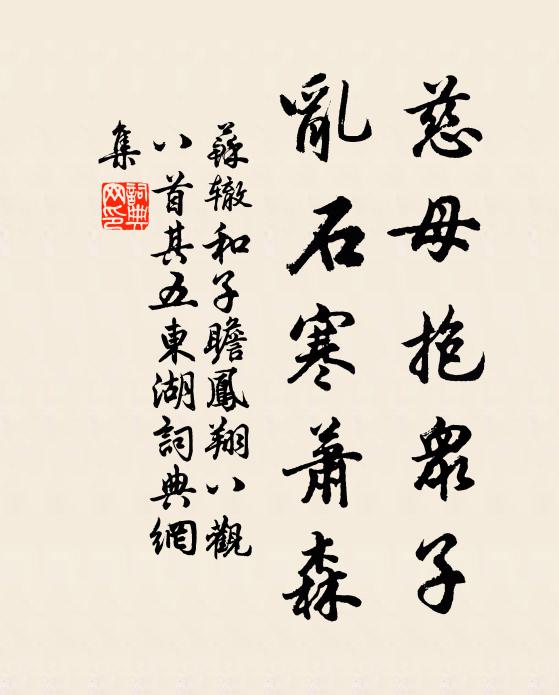 慈母抱眾子
亂石寒蕭森
蘇轍和子瞻鳳翔八觀
八首其五東湖詞典網
集
詞典
网印